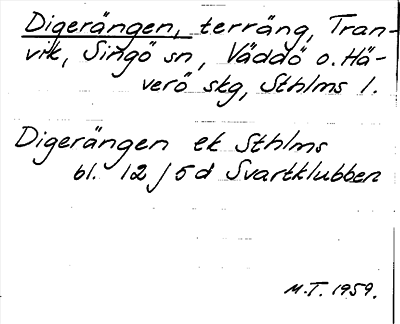 Digerängen, terräng, Tran-
vik, Singö sn, Väddö o. Hä-
verö skg, Sthlms l.
Digerängen ek Sthlms
bl. 12 J 5d Svartklubben
M.T. 1959.